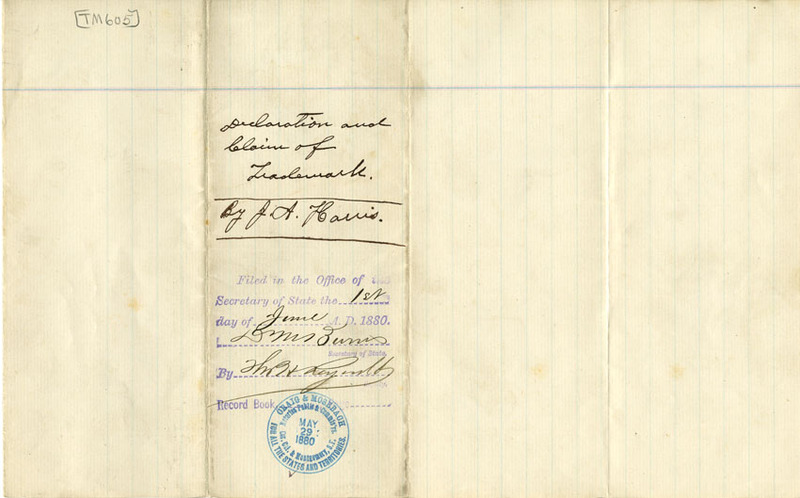 [TM605]
Declaration and
Claim of
Trademark.
By J. A. Harris.
Filed in the Office of the
Secretary of State the 1st
day of June A.D. 1880.
D M Burns
Secretary of State
By Thos H Reynolds
Record Book
CRAIG & MOREBAGH
MAY
29
1880
& Montgomery, S.F.
FOR ALL THE STATES AND TERRITORIES.